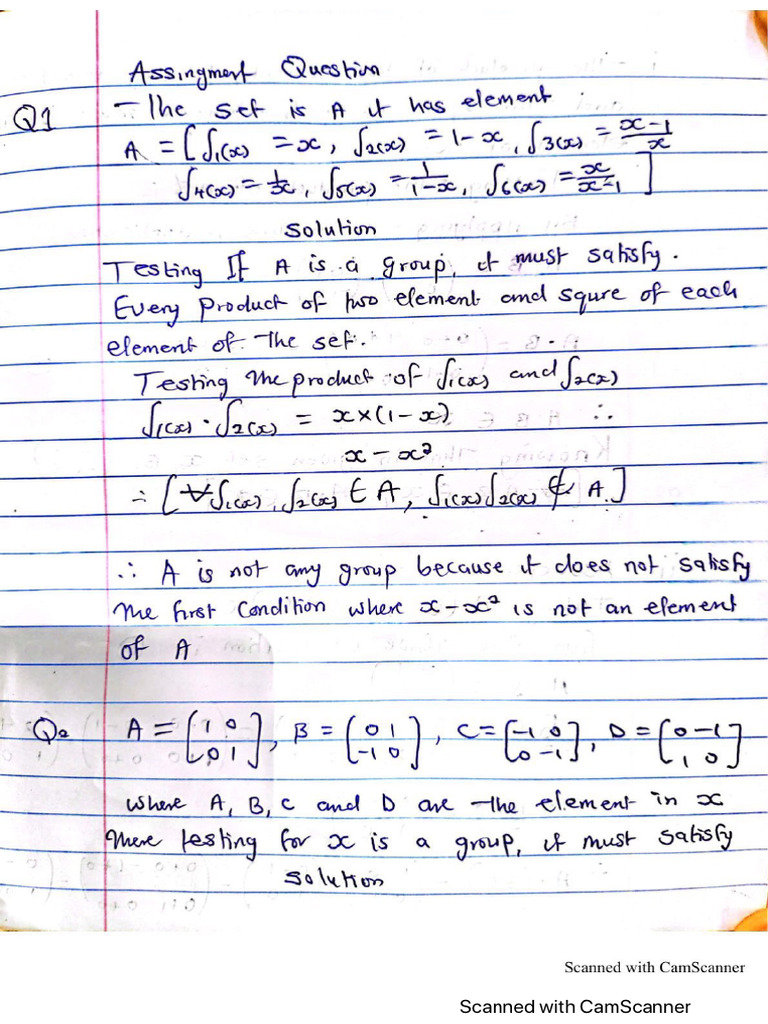 Assingment Question
Q1 - The set is A it has element
A = [ ʃ1(x) = x, ʃ2(x) = 1-x, ʃ3(x) = x-1/x
ʃ4(x) = 1/x, ʃ5(x) = 1/1-x, ʃ6(x) = x/x-1 ]
Solution
Testing If A is a group, it must satisfy.
Every product of two element and squre of each
element of the set.
Testing the product of ʃ1(x) and ʃ2(x)
ʃ1(x) · ʃ2(x) = x×(1-x)
x - x²
∴ [ ∀ʃ1(x), ʃ2(x) ∈ A, ʃ1(x)ʃ2(x) ∉ A.]
∴ A is not any group because it does not satisfy
the first condition where x-x² is not an element
of A
Q2 A = [1 0 0 1], B = [0 1 -1 0], C = [-1 0 0 -1], D = [0 -1 1 0]
where A, B, C and D are the element in x
There testing for x is a group, it must satisfy
Solution
Scanned with CamScanner
Scanned with CamScanner